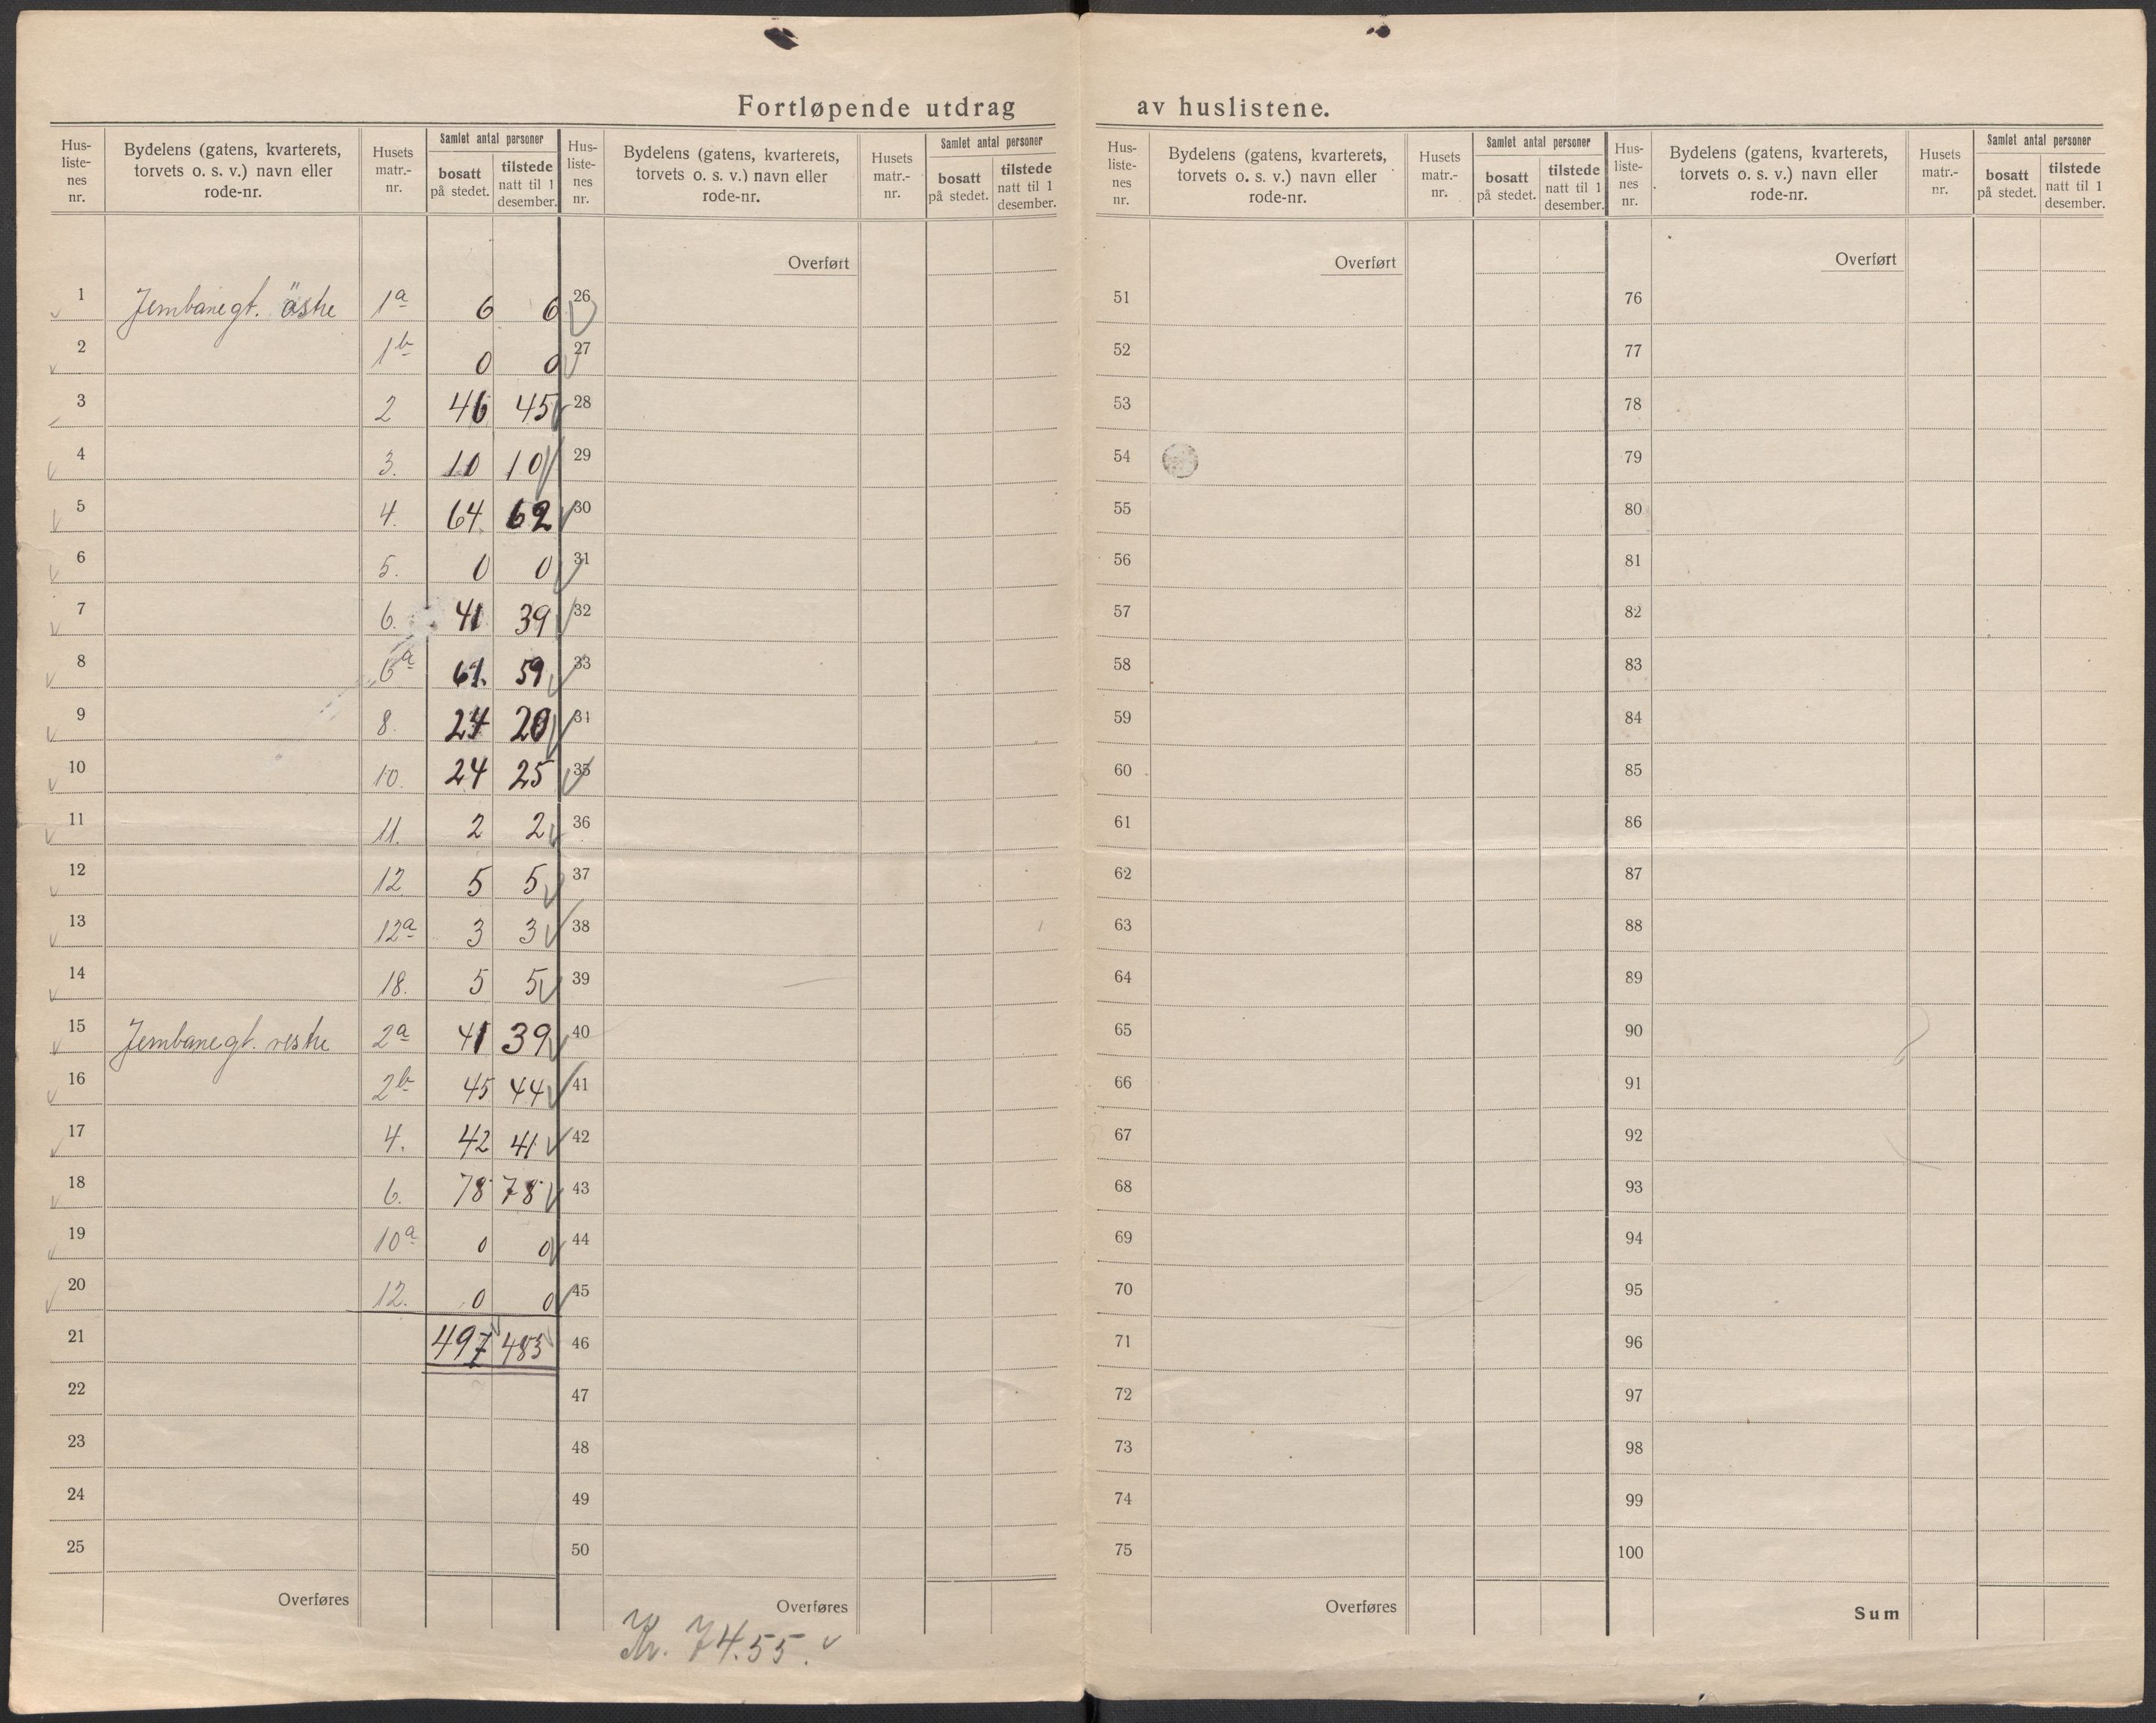 Fortløpende utdrag av huslistene.
Hus-
liste-
nes
nr.
Bydelens (gatens, kvarterets,
torvets o. s. v.) navn eller
rode-nr.
Husets
matr.-
nr.
Samlet antal personer
bosatt
på stedet.
tilstede
natt til 1
desember.
1 Jernbanegt. östre 1a 6 6
2 1b 0 0
3 2 46 45
4 3. 10 10
5 4. 64 62
6 5. 0 0
7 6. 41 39
8 6a 61. 59
9 8. 24 20
10 10. 24 25
11 11. 2 2
12 12 5 5
13 12a 3 3
14 18. 5 5
15 Jernbanegt. vestre 2a 41 39
16 2b 45 44
17 4. 42 41
18 6. 78 78
19 10a 0 0
20 12. 0 0
21 497 483
22
23
24
25
Overføres
Hus-
liste-
nes
nr.
Bydelens (gatens, kvarterets,
torvets o. s. v.) navn eller
rode-nr.
Husets
matr.-
nr.
Samlet antal personer
bosatt
på stedet.
tilstede
natt til 1
desember.
Overført
26
27
28
29
30
31
32
33
34
35
36
37
38
39
40
41
42
43
44
45
46
47
48
49
50
Overføres
Kr. 74.55.
Hus-
liste-
nes
nr.
Bydelens (gatens, kvarterets,
torvets o. s. v.) navn eller
rode-nr.
Husets
matr.-
nr.
Samlet antal personer
bosatt
på stedet.
tilstede
natt til 1
desember.
Overført
51
52
53
54
55
56
57
58
59
60
61
62
63
64
65
66
67
68
69
70
71
72
73
74
75
Overføres
Hus-
liste-
nes
nr.
Bydelens (gatens, kvarterets,
torvets o. s. v.) navn eller
rode-nr.
Husets
matr.-
nr.
Samlet antal personer
bosatt
på stedet.
tilstede
natt til 1
desember.
Overført
76
77
78
79
80
81
82
83
84
85
86
87
88
89
90
91
92
93
94
95
96
97
98
99
100
Sum